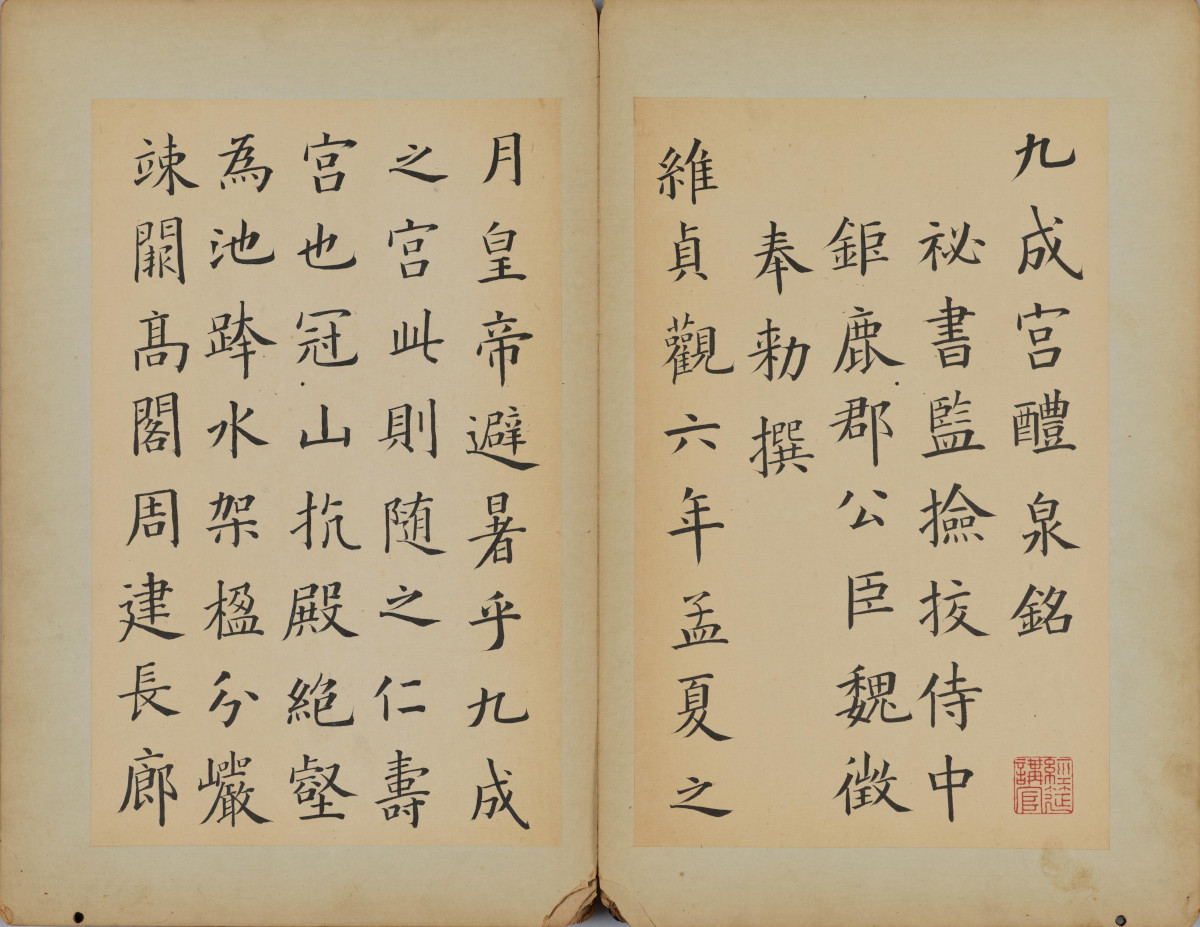 九成宮醴泉銘
祕書監撿挍侍中
鉅鹿郡公臣魏徵
奉勅撰
維貞觀六年孟夏之
月皇帝避暑乎九成
之宮此則随之仁壽
宮也冠山抗殿絶壑
為池跨水架楹分巗
竦闕髙閣周建長廊
經筵講官